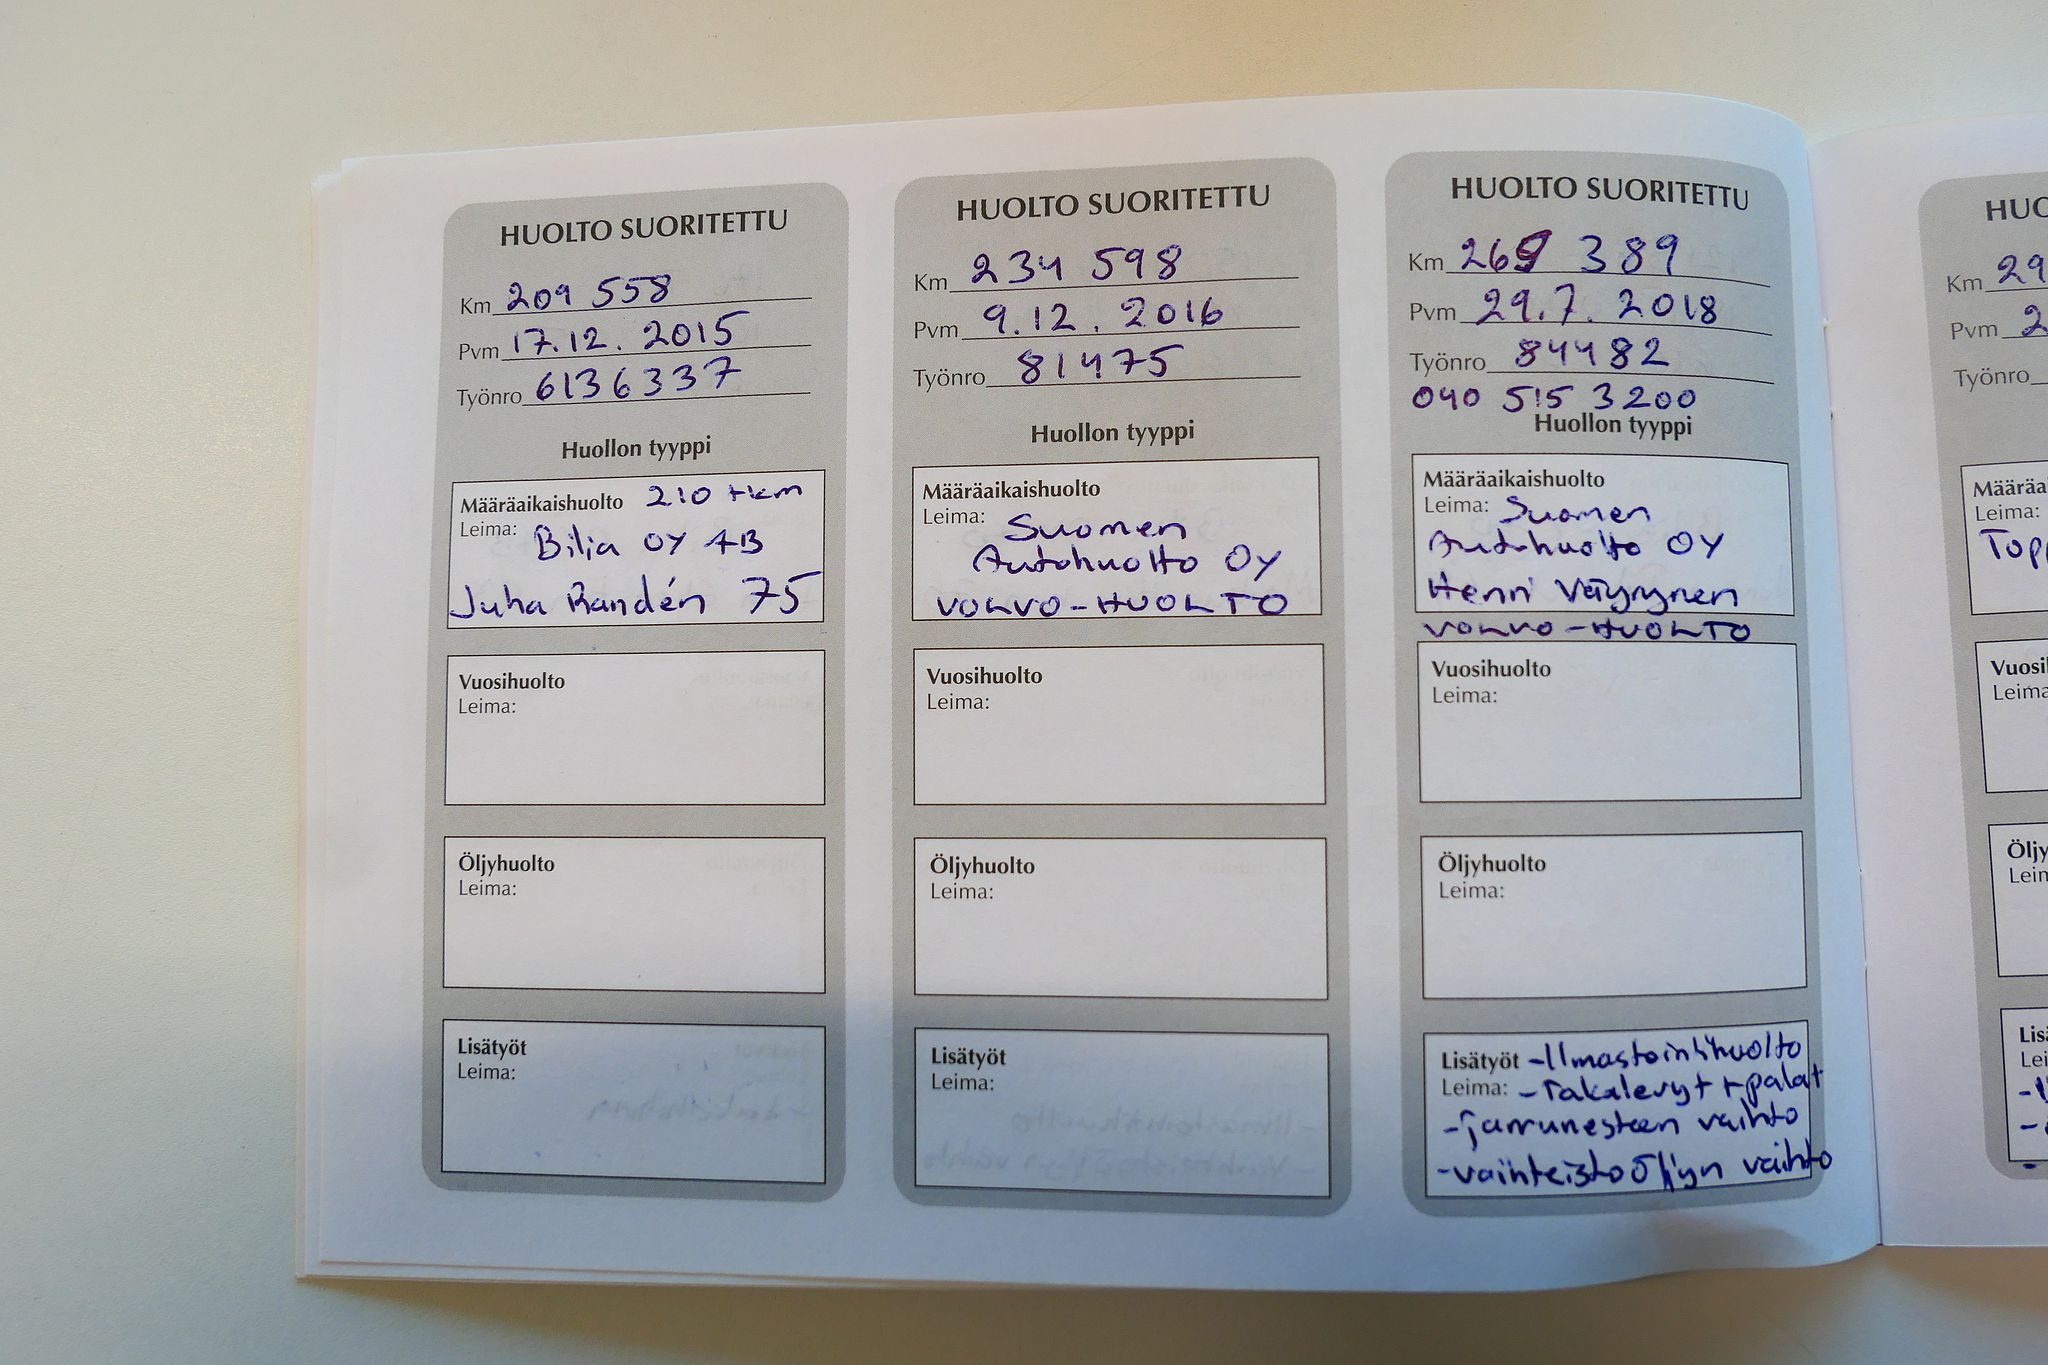 HUOLTO SUORITETTU
Km 209 558
Pvm 17.12. 2015
Työnro 6136337
Huollon tyyppi
Määräaikaishuolto 210 tkm
Leima: Bilia OY AB
Juha Randén 75
Vuosihuolto
Leima:
Öljyhuolto
Leima:
Lisätyöt
Leima:
HUOLTO SUORITETTU
Km 234 598
Pvm 9.12. 2016
Työnro 81475
Huollon tyyppi
Määräaikaishuolto
Leima: Suomen
Autohuolto OY
VOLVO-HUOLTO
Vuosihuolto
Leima:
Öljyhuolto
Leima:
Lisätyöt
Leima:
HUOLTO SUORITETTU
Km 269 389
Pvm 29.7. 2018
Työnro 84482
040 515 3200
Huollon tyyppi
Määräaikaishuolto
Leima: Suomen
Autohuolto OY
Henri Väyrynen
VOLVO-HUOLTO
Vuosihuolto
Leima:
Öljyhuolto
Leima:
Lisätyöt -Ilmastointihuolto
Leima: -Takalevyt + palat
-jarrunesteen vaihto
-vaihteistoöljyn vaihto
HUO
Km 29
Pvm 2
Työnro
Määräa
Leima:
Topp
Vuosi
Leima
Öljy
Leim
Lis
Lei